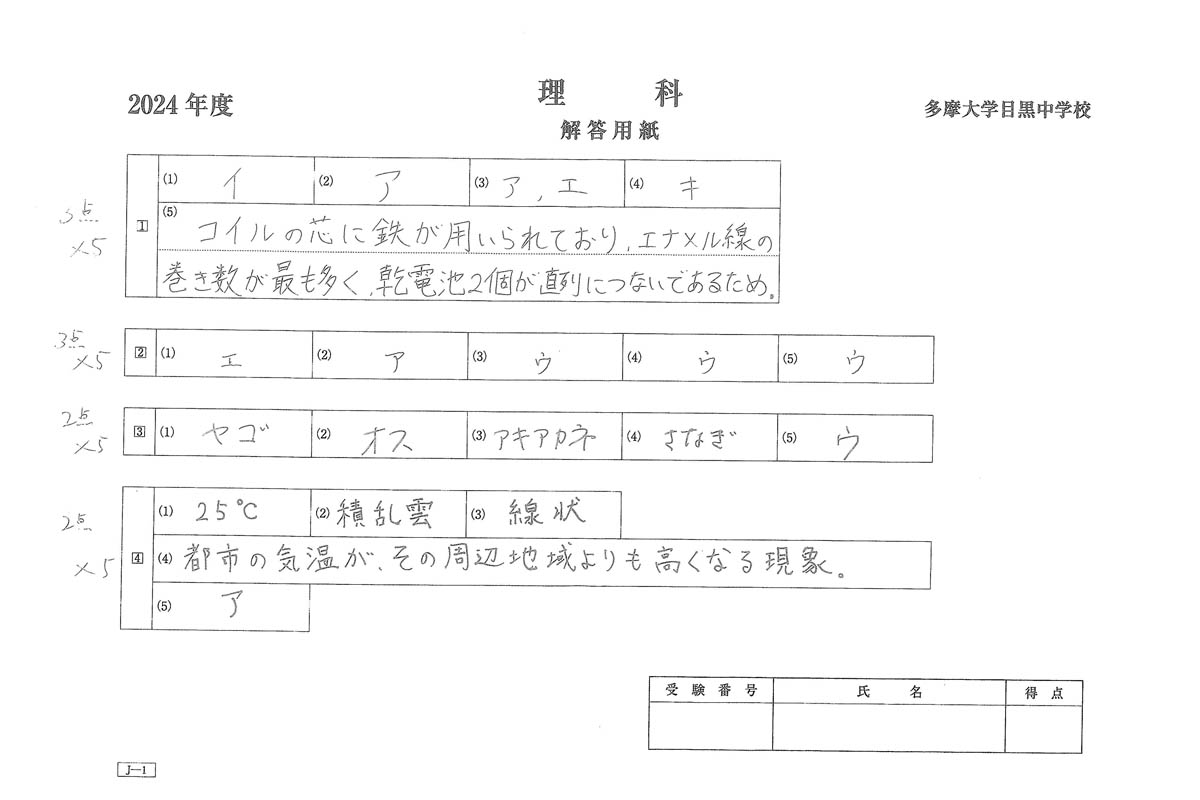 2024 年度
理 科
解答用紙
多摩大学目黒中学校
3点 ×5
1
(1) イ (2) ア (3) ア, エ (4) キ
(5) コイルの芯に鉄が用いられており、エナメル線の
巻き数が最も多く、乾電池2個が直列につないであるため。
3点 ×5
2 (1) エ (2) ア (3) ウ (4) ウ (5) ウ
2点 ×5
3 (1) ヤゴ (2) オス (3) アキアカネ (4) さなぎ (5) ウ
2点 ×5
4
(1) 25℃ (2) 積乱雲 (3) 線状
(4) 都市の気温が、その周辺地域よりも高くなる現象。
(5) ア
受験番号 氏名 得点
J-1